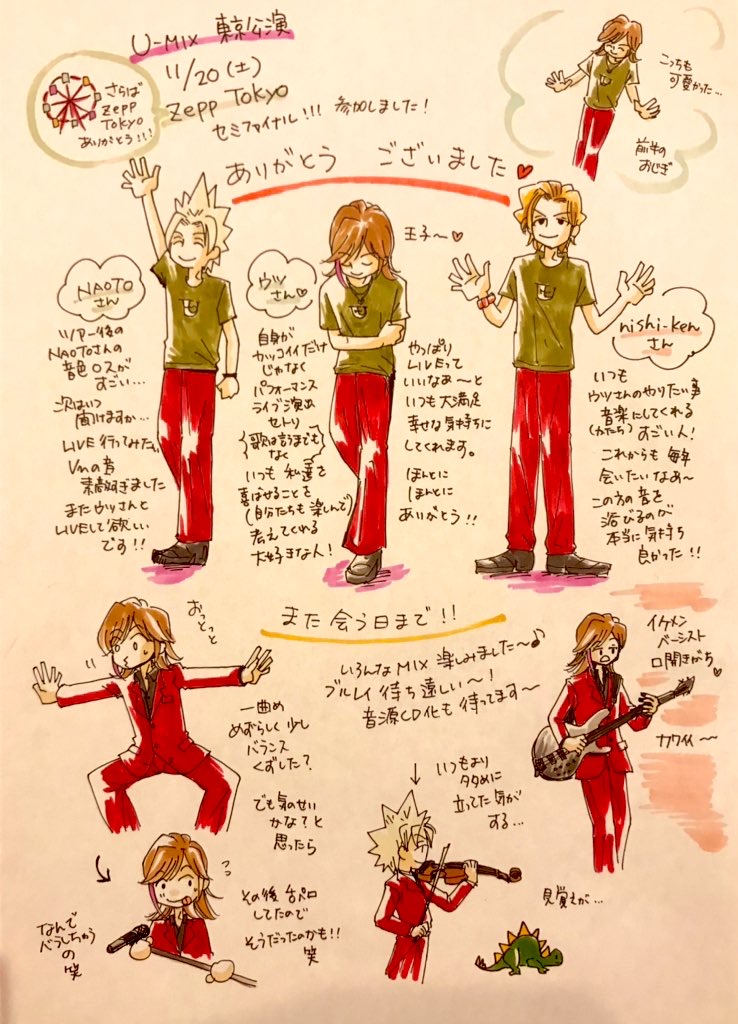 U-MIX 東京公演
11/20(土)
Zepp Tokyo
セミファイナル!!! 参加しました!
さらば
Zepp
Tokyo
ありがとう!!!
こっちも
可愛かった…
前半の
おじぎ
ありがとう ございました♥
NAOTO
さん
ツアー後の
NAOTOさんの
音色ロスが
すごい…
次はいつ
聞けますか…
LIVE行ってみたい
Vnの音
素敵すぎました
またウツさんと
LIVEして欲しい
です!!
ウツ
さん♡
自身が
カッコイイだけ
じゃなく
パフォーマンス
ライブ演出
セトリ
(歌は言うまでも
なく)
いつも 私達を
喜ばせることを
(自分たちも楽しんで)
考えてくれる
大好きな人!
王子〜♥
やっぱり
LIVEって
いいなぁ〜と
いつも大満足
幸せな気持ちに
してくれます。
ほんとに
ほんとに
ありがとう!!
nishi-ken
さん
いつも
ウツさんのやりたい事
音楽にしてくれる
(かたち)すごい人!
これからも 毎年
会いたいなぁ〜
この方の音を
浴びるのが
本当に気持ち
良かった!!
また会う日まで!!
いろんなMIX 楽しみました〜♪
ブルレイ 待ち遠しい〜!
音源CD化も 待ってます〜
おっとっと
一曲め
めずらしく少し
バランス
くずした?
でも気のせい
かな?と
思ったら
なんで
バラしちゃう
の 笑
その後 舌ペロ
してたので
そうだったのかも!!
笑
↓
いつもより
タタめに
立ってた気が
する…
見覚えが…
イケメン
ベーシスト
口開きがち
♥
カワイイ〜